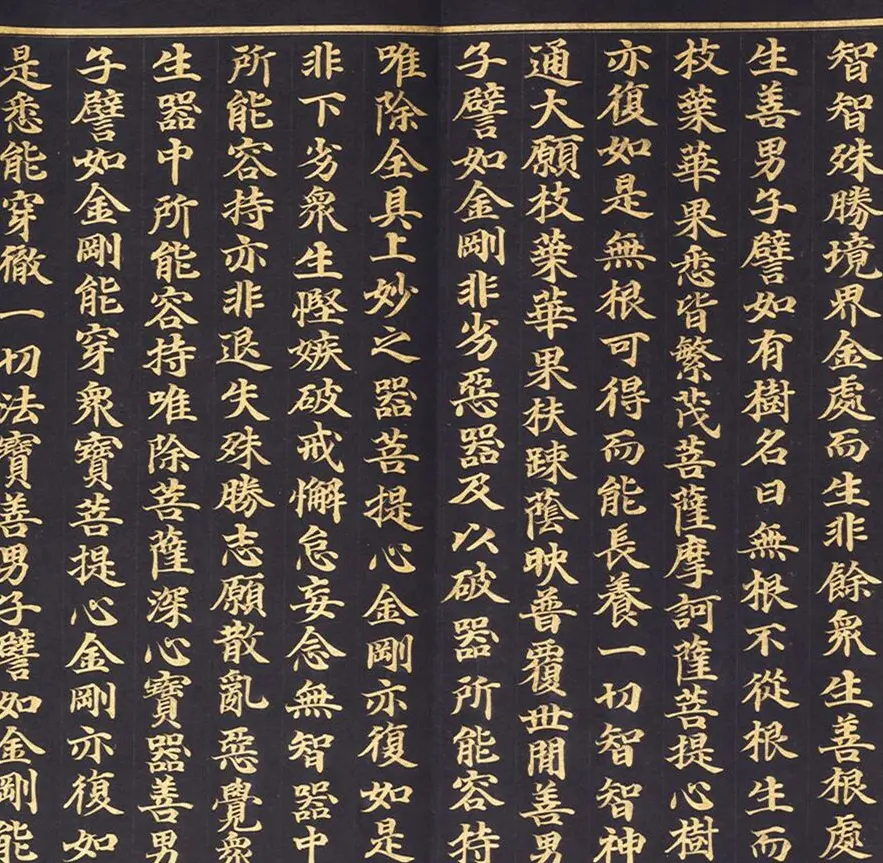 智智殊勝境界金處而生非餘衆生善根處
生善男子譬如有樹名曰無根不從根生而
枝葉華果悉皆繁茂菩薩摩訶薩菩提心樹
亦復如是無根可得而能長養一切智智神
通大願枝葉華果扶踈蔭映普覆世閒善男
子譬如金剛非劣惡器及以破器所能容持
唯除全具上妙之器菩提心金剛亦復如是
非下劣衆生慳嫉破戒懈怠妄念無智器中
所能容持亦非退失殊勝志願散亂惡覺衆
生器中所能容持唯除菩薩深心寶器善男
子譬如金剛能穿衆寶菩提心金剛亦復如
是悉能穿徹一切法寶善男子譬如金剛能